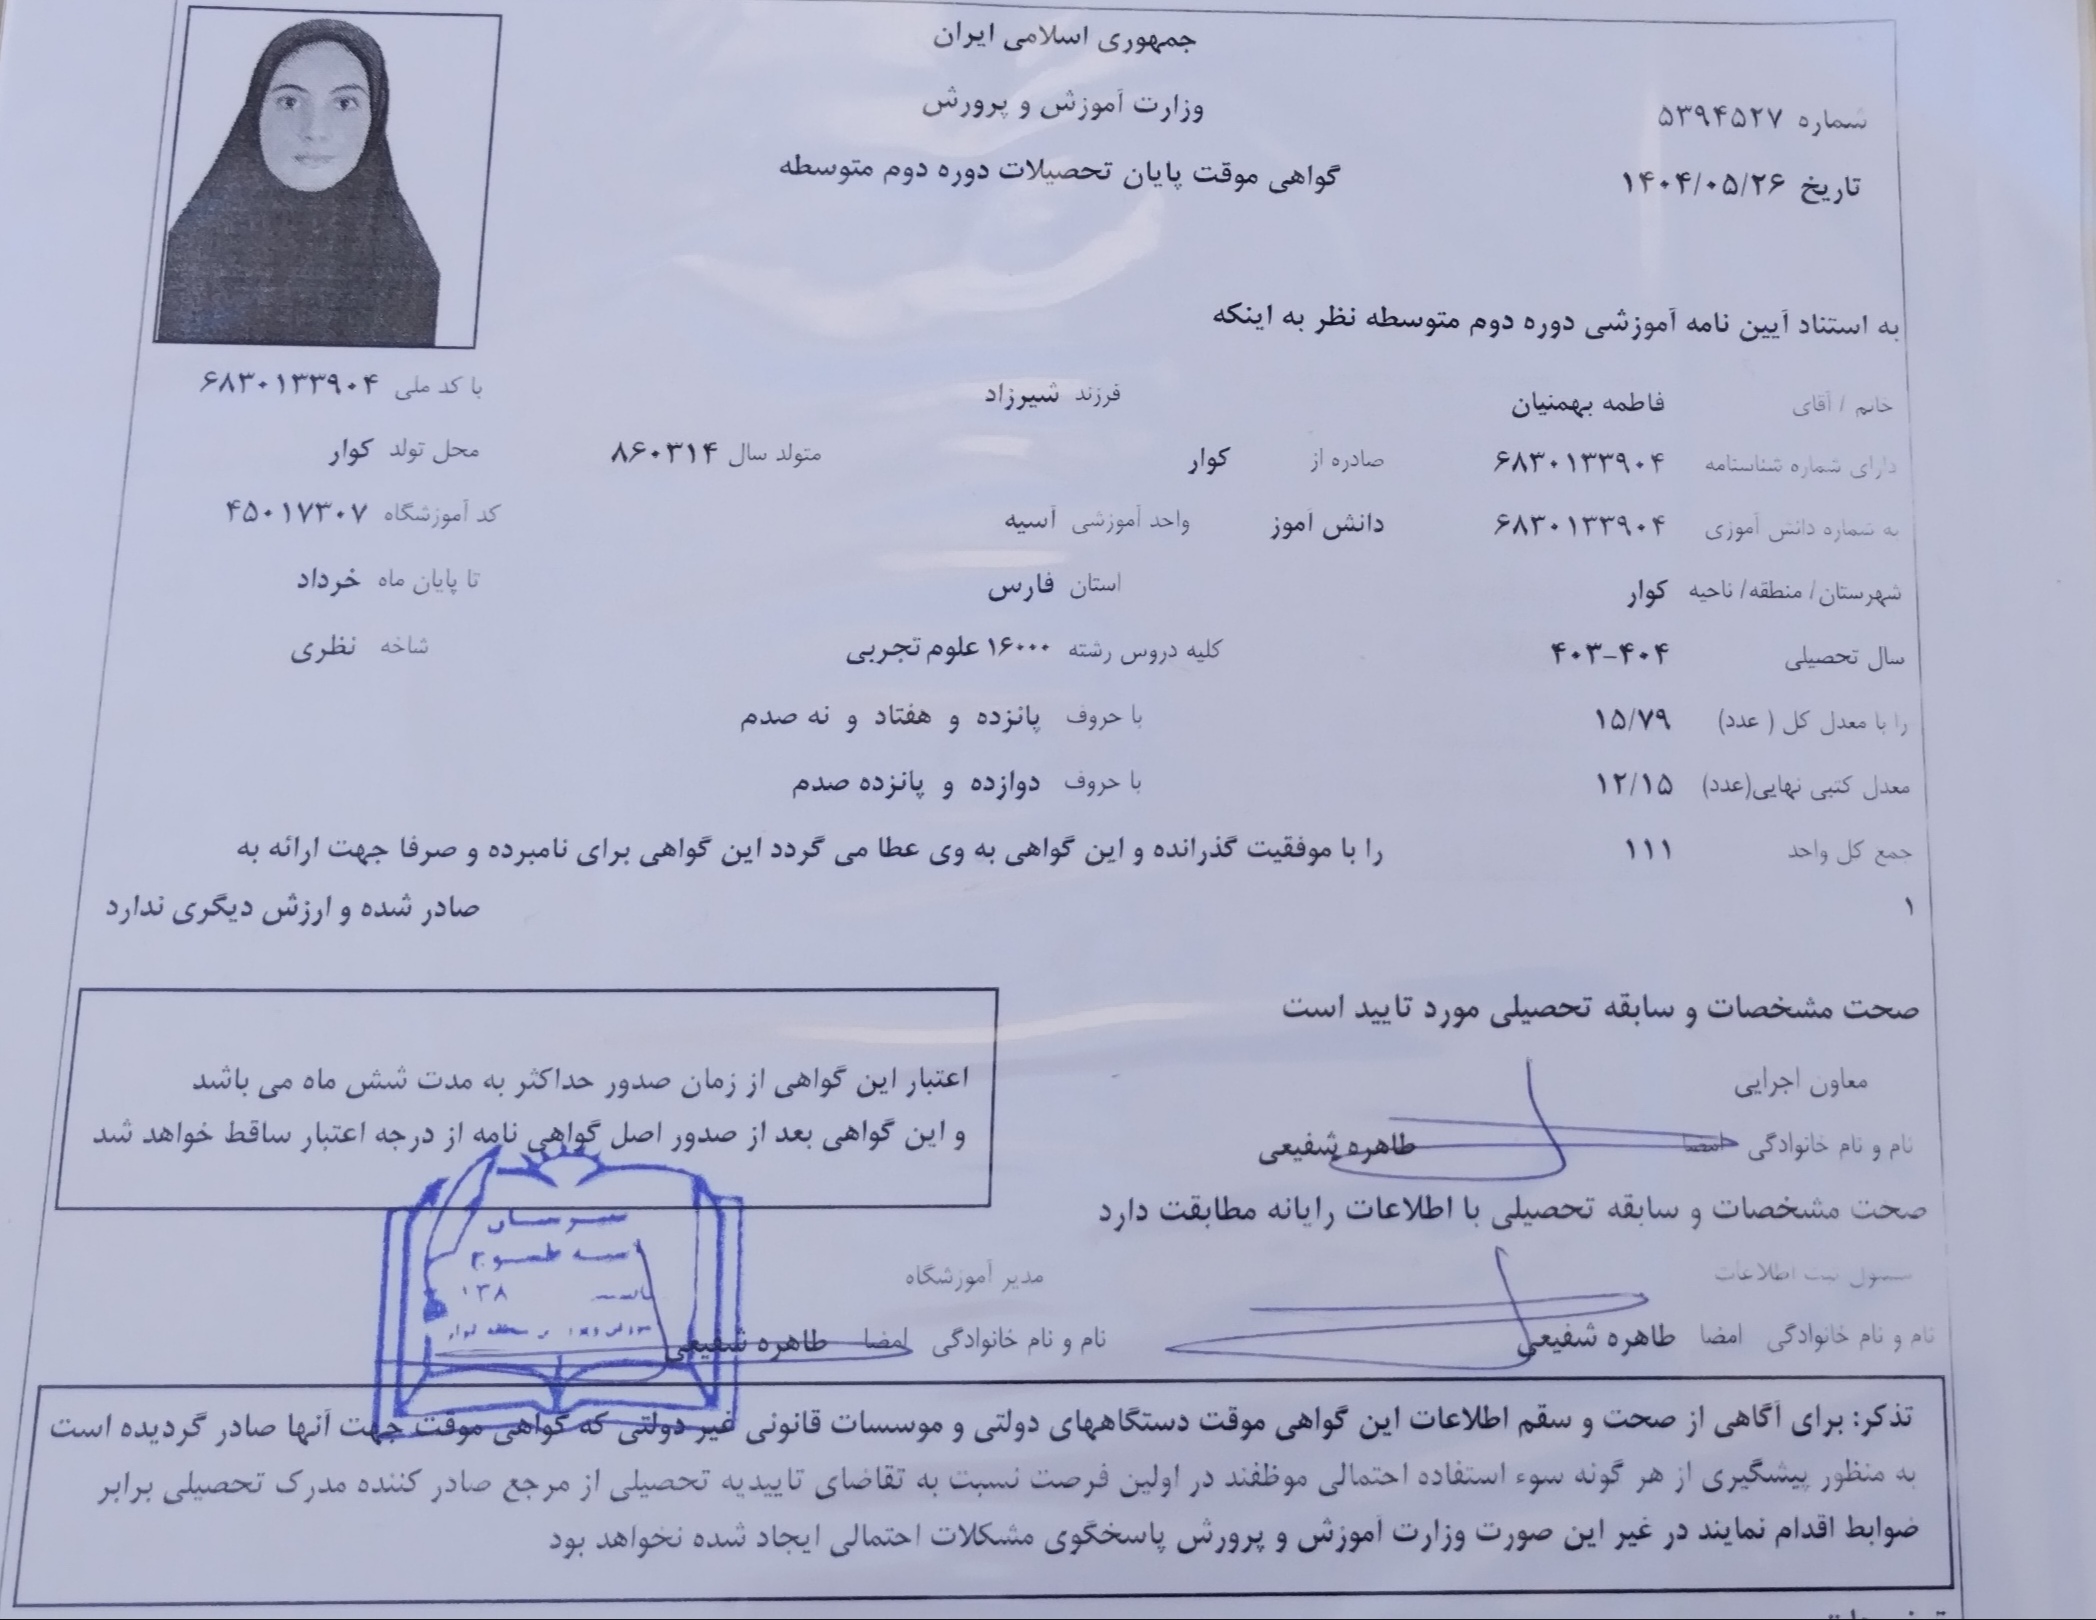 جمهوری اسلامی ایران
وزارت آموزش و پرورش
گواهی موقت پایان تحصیلات دوره دوم متوسطه
شماره ۵۳۹۴۵۲۷
تاریخ ۱۴۰۴/۰۵/۲۶
به استناد آیین نامه آموزشی دوره دوم متوسطه نظر به اینکه
خانم / آقای فاطمه بهمنیان فرزند شیرزاد با کد ملی ۶۸۳۰۱۳۳۹۰۴
دارای شماره شناسنامه ۶۸۳۰۱۳۳۹۰۴ صادره از کوار متولد سال ۸۶۰۳۱۴ محل تولد کوار
به شماره دانش آموزی ۶۸۳۰۱۳۳۹۰۴ دانش آموز واحد آموزشی آسیه کد آموزشگاه ۴۵۰۱۷۳۰۷
شهرستان/ منطقه/ ناحیه کوار استان فارس تا پایان ماه خرداد
سال تحصیلی ۴۰۳-۴۰۴ کلیه دروس رشته ۱۶۰۰۰ علوم تجربی شاخه نظری
را با معدل کل ( عدد) ۱۵/۷۹ با حروف پانزده و هفتاد و نه صدم
معدل کتبی نهایی(عدد) ۱۲/۱۵ با حروف دوازده و پانزده صدم
جمع کل واحد ۱۱۱ را با موفقیت گذرانده و این گواهی به وی عطا می گردد این گواهی برای نامبرده و صرفا جهت ارائه به
۱ صادر شده و ارزش دیگری ندارد
صحت مشخصات و سابقه تحصیلی مورد تایید است
معاون اجرایی
نام و نام خانوادگی امضا طاهره شفیعی
اعتبار این گواهی از زمان صدور حداکثر به مدت شش ماه می باشد
و این گواهی بعد از صدور اصل گواهی نامه از درجه اعتبار ساقط خواهد شد
صحت مشخصات و سابقه تحصیلی با اطلاعات رایانه مطابقت دارد
مسئول ثبت اطلاعات مدیر آموزشگاه
نام و نام خانوادگی امضا طاهره شفیعی نام و نام خانوادگی امضا طاهره شفیعی
تذکر: برای آگاهی از صحت و سقم اطلاعات این گواهی موقت دستگاههای دولتی و موسسات قانونی غیر دولتی که گواهی موقت جهت آنها صادر گردیده است
به منظور پیشگیری از هر گونه سوء استفاده احتمالی موظفند در اولین فرصت نسبت به تقاضای تاییدیه تحصیلی از مرجع صادر کننده مدرک تحصیلی برابر
ضوابط اقدام نمایند در غیر این صورت وزارت آموزش و پرورش پاسخگوی مشکلات احتمالی ایجاد شده نخواهد بود